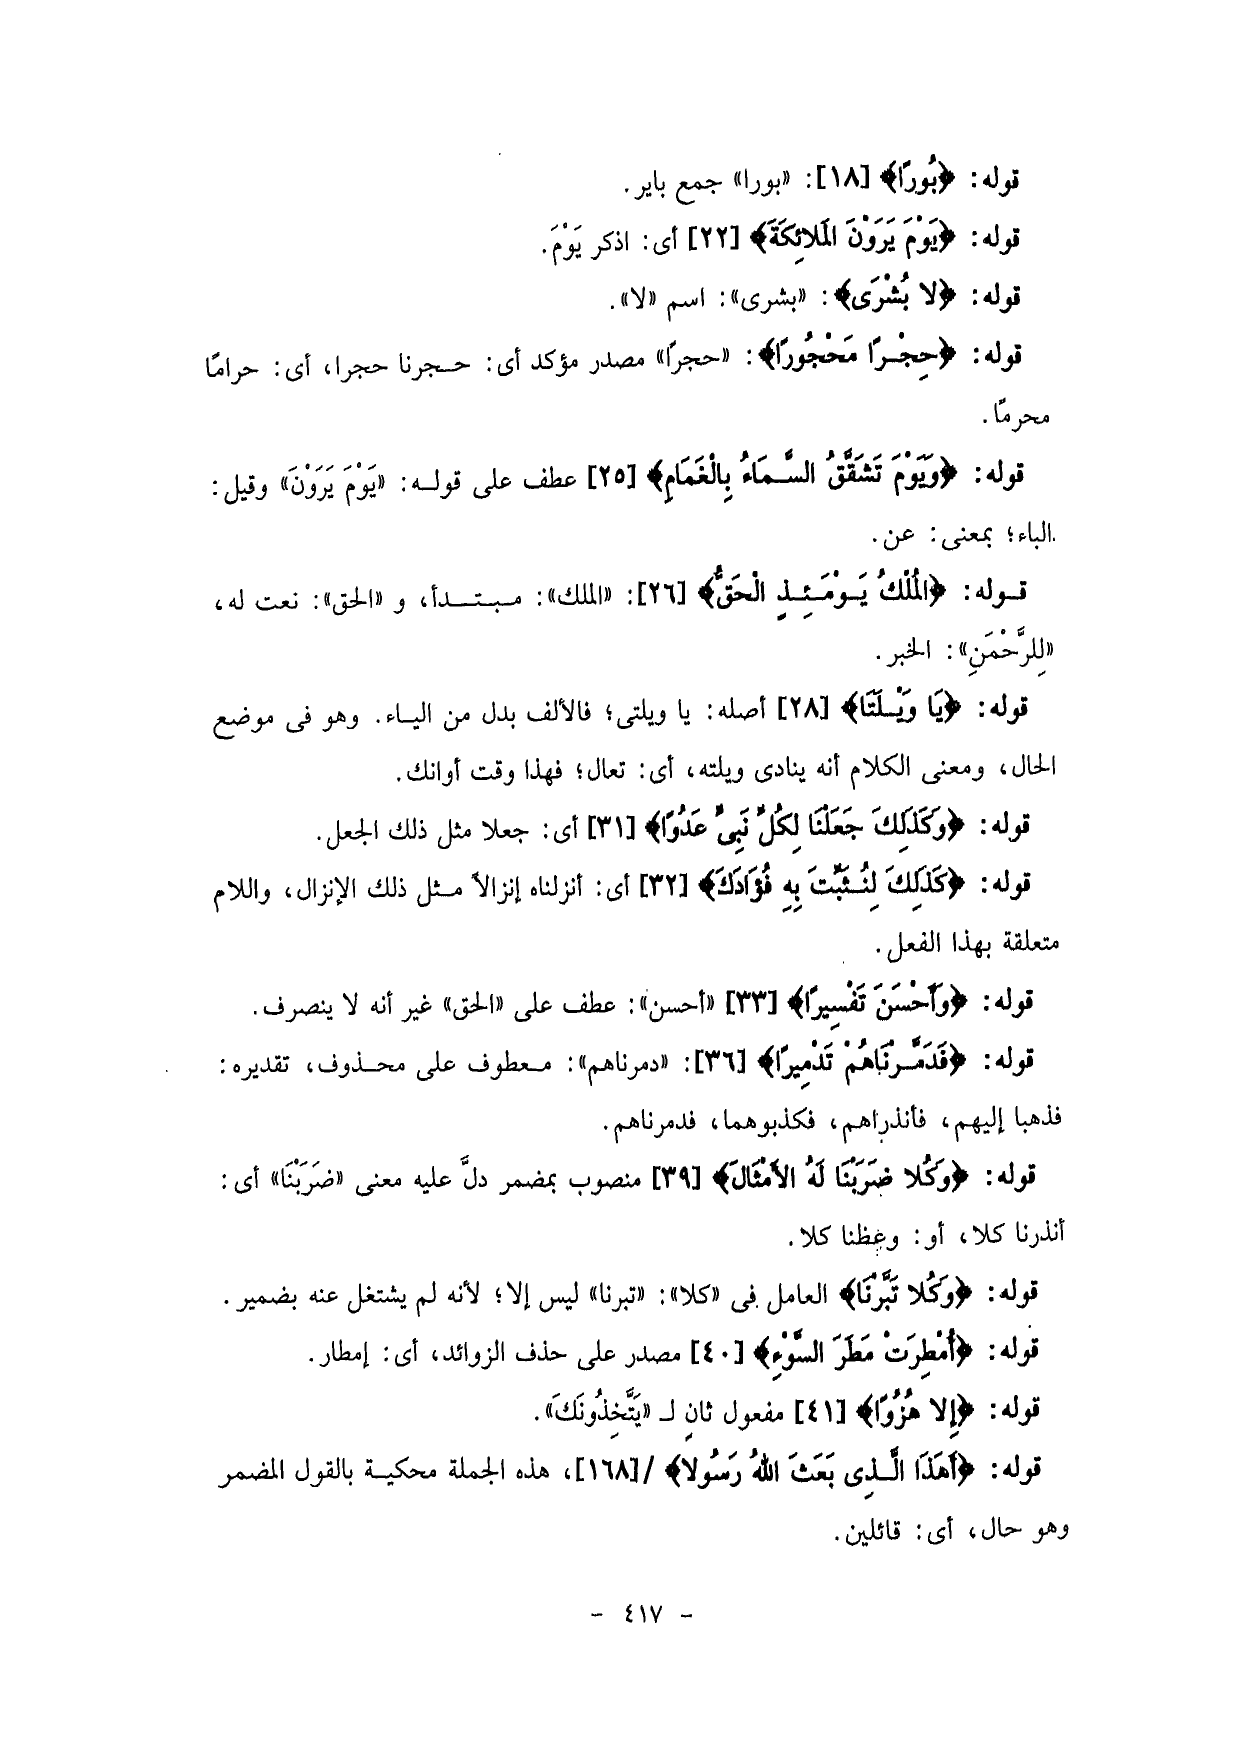 قوله: ﴿بُورًا﴾ [١٨]: «بورا» جمع باير.
قوله: ﴿يَوْمَ يَرَوْنَ الْمَلائِكَةَ﴾ [٢٢] أى: اذكر يَوْمَ.
قوله: ﴿لا بُشْرَى﴾: «بشرى»: اسم «لا».
قوله: ﴿حِجْرًا مَحْجُورًا﴾: «حجرًا» مصدر مؤكد أى: حجرنا حجرا، أى: حرامًا
محرمًا.
قوله: ﴿وَيَوْمَ تَشَقَّقُ السَّمَاءُ بِالْغَمَامِ﴾ [٢٥] عطف على قوله: «يَوْمَ يَرَوْنَ» وقيل:
الباء؛ بمعنى: عن.
قوله: ﴿الْمُلْكُ يَوْمَئِذٍ الْحَقُّ﴾ [٢٦]: «الملك»: مبتدأ، و «الحق»: نعت له،
«لِلرَّحْمَنِ»: الخبر.
قوله: ﴿يَا وَيْلَتَا﴾ [٢٨] أصله: يا ويلتى؛ فالألف بدل من الياء. وهو فى موضع
الحال، ومعنى الكلام أنه ينادى ويلته، أى: تعال؛ فهذا وقت أوانك.
قوله: ﴿وَكَذَلِكَ جَعَلْنَا لِكُلِّ نَبِىٍّ عَدُوًا﴾ [٣١] أى: جعلا مثل ذلك الجعل.
قوله: ﴿كَذَلِكَ لِنُثَبِّتَ بِهِ فُؤَادَكَ﴾ [٣٢] أى: أنزلناه إنزالاً مثل ذلك الإنزال، واللام
متعلقة بهذا الفعل.
قوله: ﴿وَأَحْسَنَ تَفْسِيرًا﴾ [٣٣] «أحسن»: عطف على «الحق» غير أنه لا ينصرف.
قوله: ﴿فَدَمَّرْنَاهُمْ تَدْمِيرًا﴾ [٣٦]: «دمرناهم»: معطوف على محذوف، تقديره:
فذهبا إليهم، فأنذراهم، فكذبوهما، فدمرناهم.
قوله: ﴿وَكُلا ضَرَبْنَا لَهُ الأَمْثَالَ﴾ [٣٩] منصوب بمضمر دلَّ عليه معنى «ضَرَبْنَا» أى:
أنذرنا كلا، أو: وعظنا كلا.
قوله: ﴿وَكُلا تَبَّرْنَا﴾ العامل فى «كلا»: «تبرنا» ليس إلا؛ لأنه لم يشتغل عنه بضمير.
قوله: ﴿أُمْطِرَتْ مَطَرَ السَّوْءِ﴾ [٤٠] مصدر على حذف الزوائد، أى: إمطار.
قوله: ﴿إِلا هُزُوًا﴾ [٤١] مفعول ثانٍ لـ «يَتَّخِذُونَكَ».
قوله: ﴿أَهَذَا الَّذِى بَعَثَ اللهُ رَسُولا﴾ /[١٦٨]، هذه الجملة محكية بالقول المضمر
وهو حال، أى: قائلين.
- ٤١٧ -